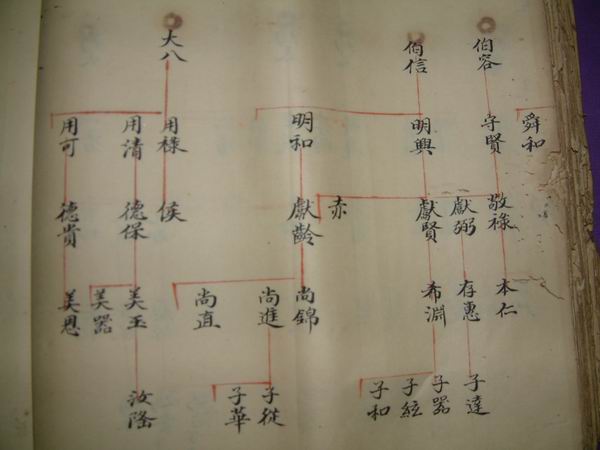 伯容
伯信
大八
舜和
守賢
明興
明和
用祿
用清
用可
敬祿
獻弼
獻賢
赤
獻齡
侯
德保
德貴
本仁
存惠
希淵
尚錦
尚進
尚直
美玉
美器
美恩
子達
子器
子絃
子和
子從
子華
汝隆